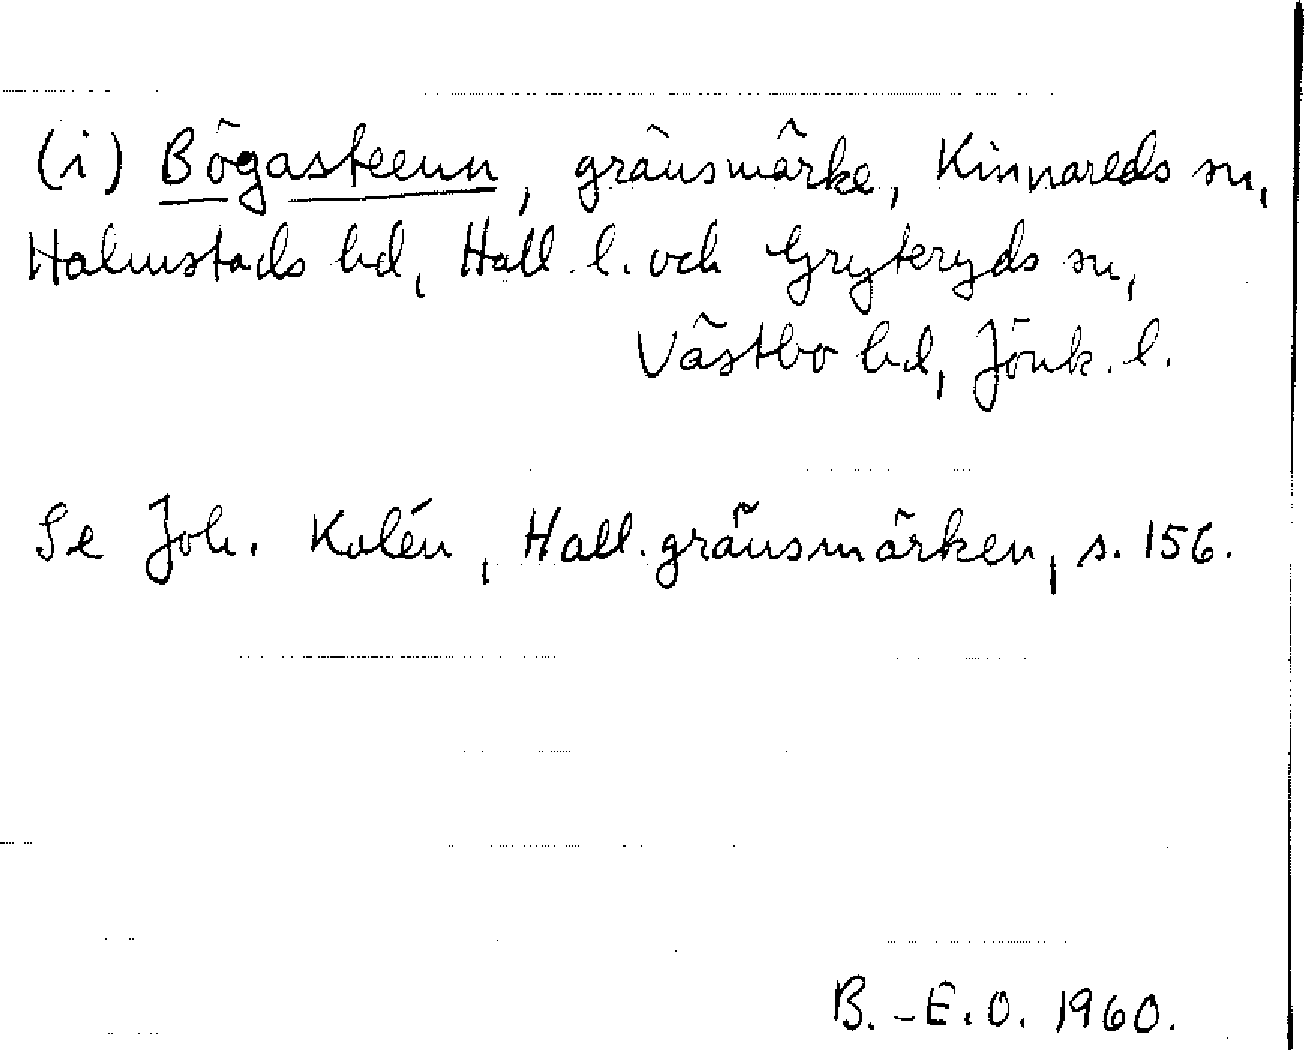 (i) Bögasteenn, gränsmärke, Kinnareds sn,
Halmstads hd, Hall. l. och Gryteryds sn,
Västbo hd, Jönk. l.
Se Joh. Kalén, Hall. gränsmärken, s. 156.
B.-E.O. 1960.